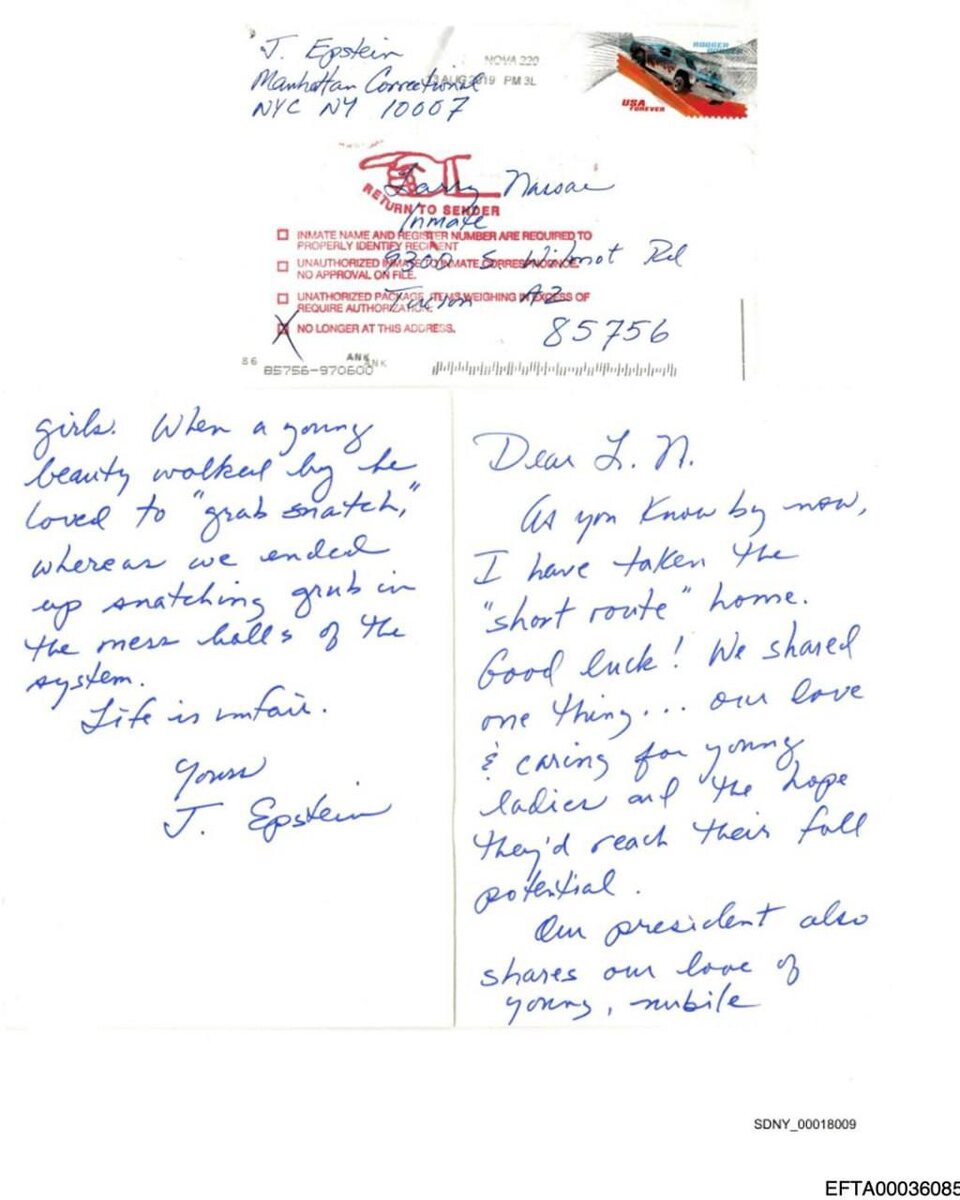 J. Epstein
Manhattan Correctional
NYC NY 10007
NOVA 220
AUG 2019 PM 3L
USA
FOREVER
RETURN TO SENDER
Larry Nassar
Inmate
9300 S. Wilmot Rd
Tucson AZ
85756
INMATE NAME AND REGISTER NUMBER ARE REQUIRED TO
PROPERLY IDENTIFY RECIPIENT
UNAUTHORIZED INMATE TO INMATE CORRESPONDENCE.
NO APPROVAL ON FILE.
UNATHORIZED PACKAGE, ITEMS WEIGHING IN EXCESS OF
REQUIRE AUTHORIZATION.
X NO LONGER AT THIS ADDRESS.
86
ANK
ANK
85756-970600
Dear L. N.
As you know by now,
I have taken the
"short route" home.
Good luck! We shared
one thing... our love
& caring for young
ladies and the hope
they'd reach their full
potential.
Our president also
shares our love of
young, nubile
girls. When a young
beauty walked by he
loved to "grab snatch,"
whereas we ended
up snatching grub in
the mess halls of the
system.
Life is unfair.
Yours
J. Epstein
SDNY_00018009
EFTA00036085